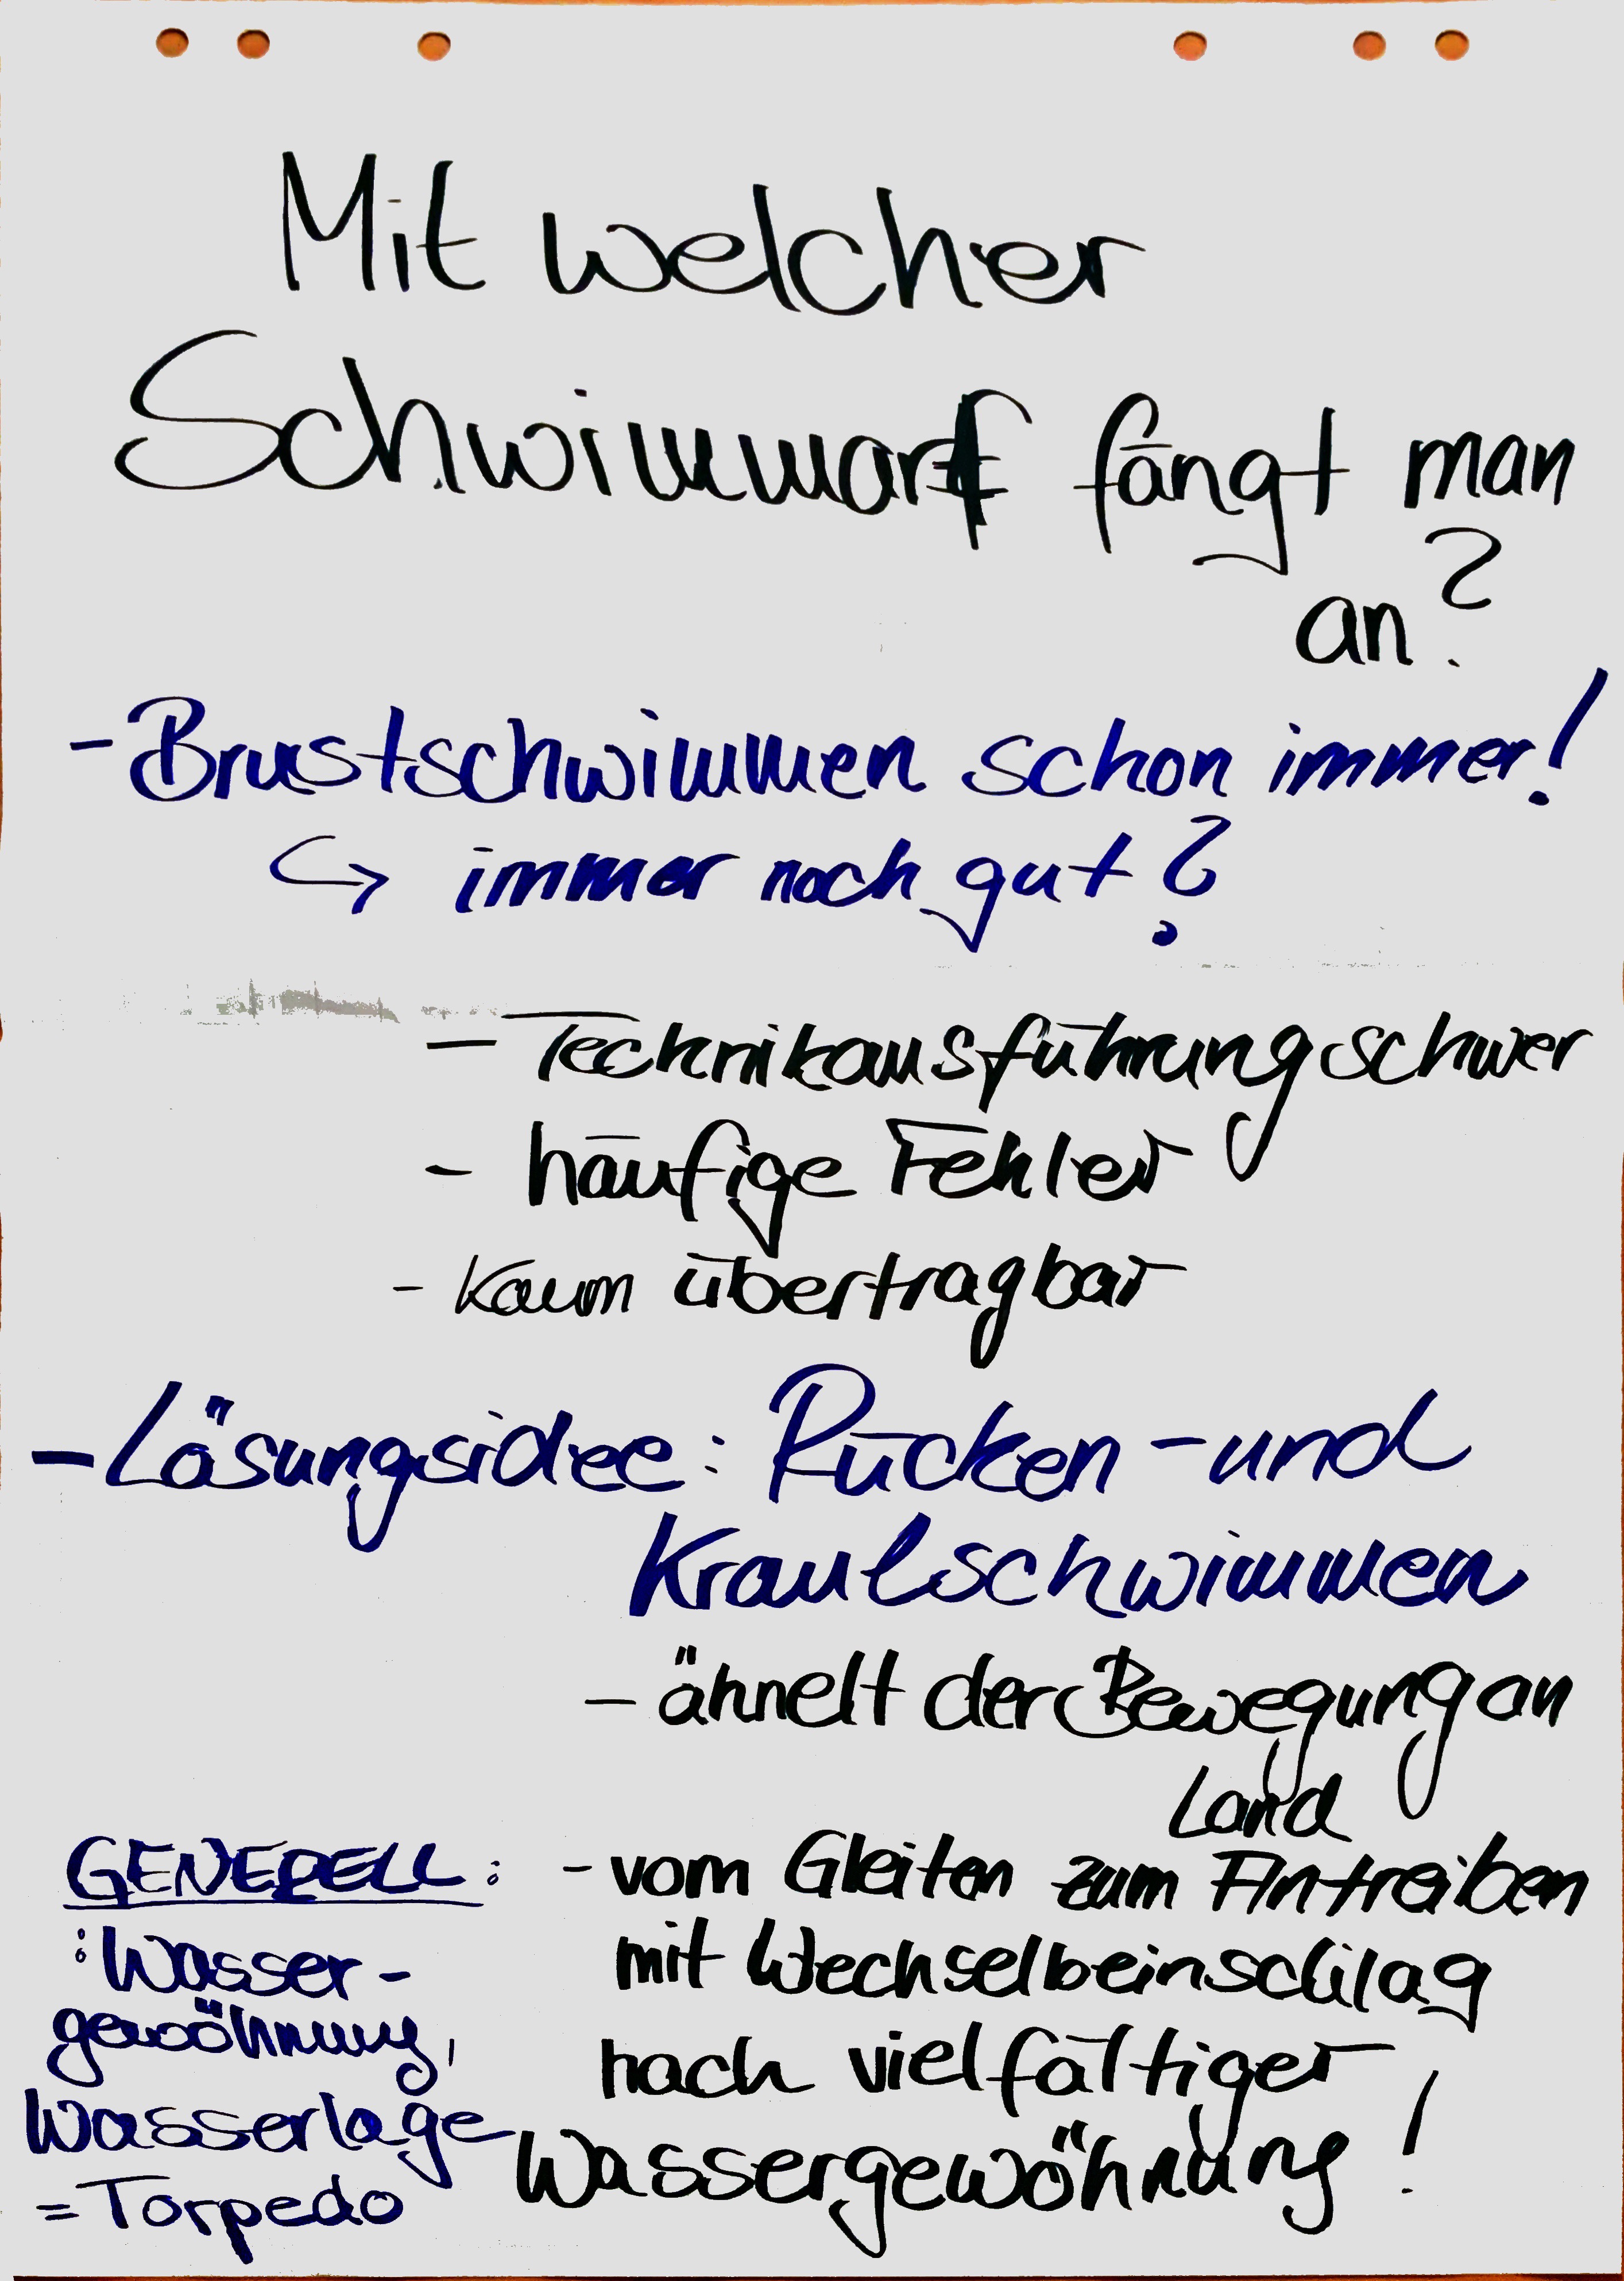 Mit welcher
Schwimmart fängt man
an?
- Brustschwimmen schon immer!
↪ immer noch gut?
- Technikausführung schwer
- häufige Fehler
- kaum übertragbar
- Lösungsidee: Rücken- und
Kraulschwimmen
- ähnelt der Bewegung an
Land
- vom Gleiten zum Antreiben
mit Wechselbeinschlag
nach vielfältiger
Wassergewöhnung!
GENERELL:
: Wasser-
gewöhnung,
Wasserlage
= Torpedo